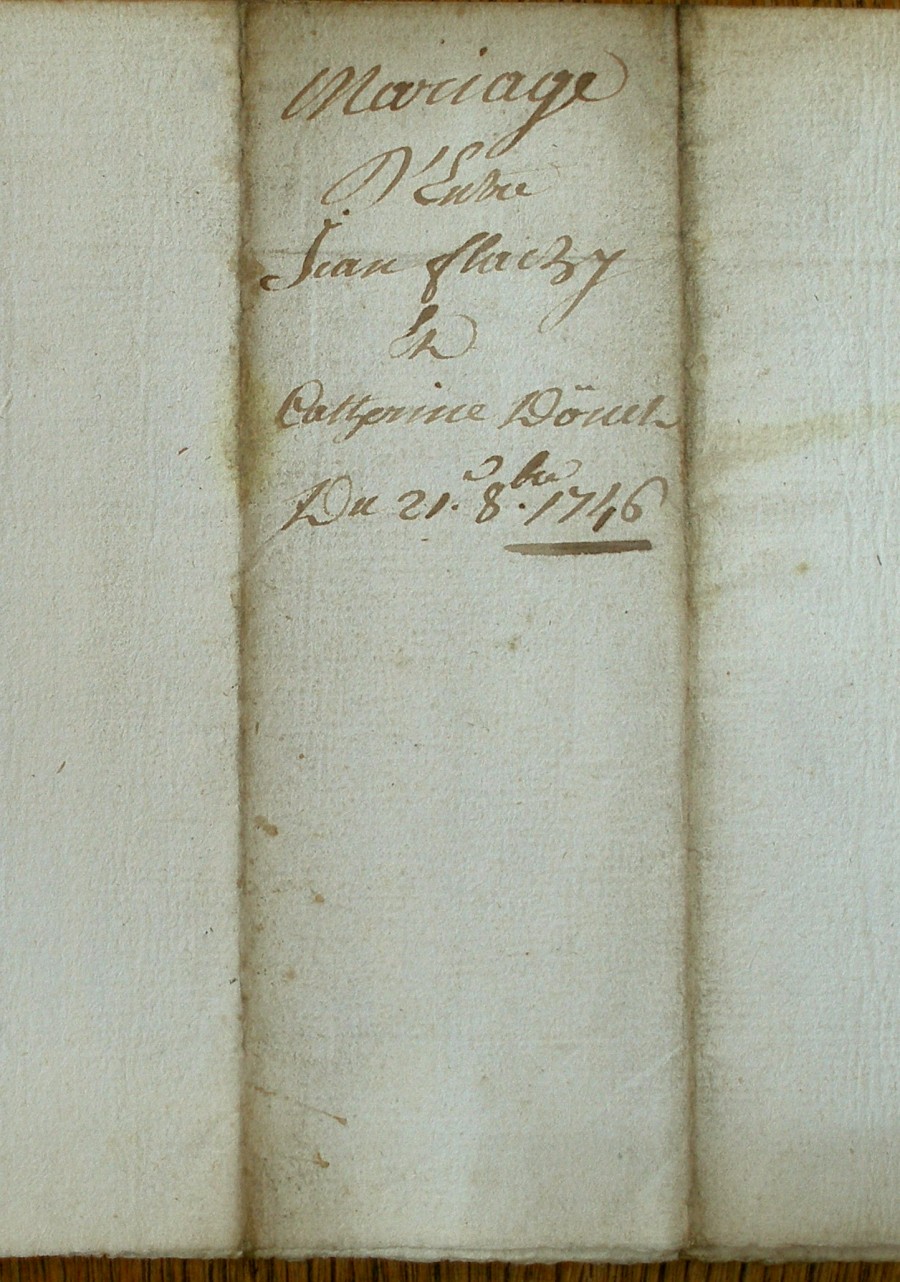 Mariage
D'Entre
Jean flachy
Et
Catherine Dönet
Du 21.e 8.bre 1746